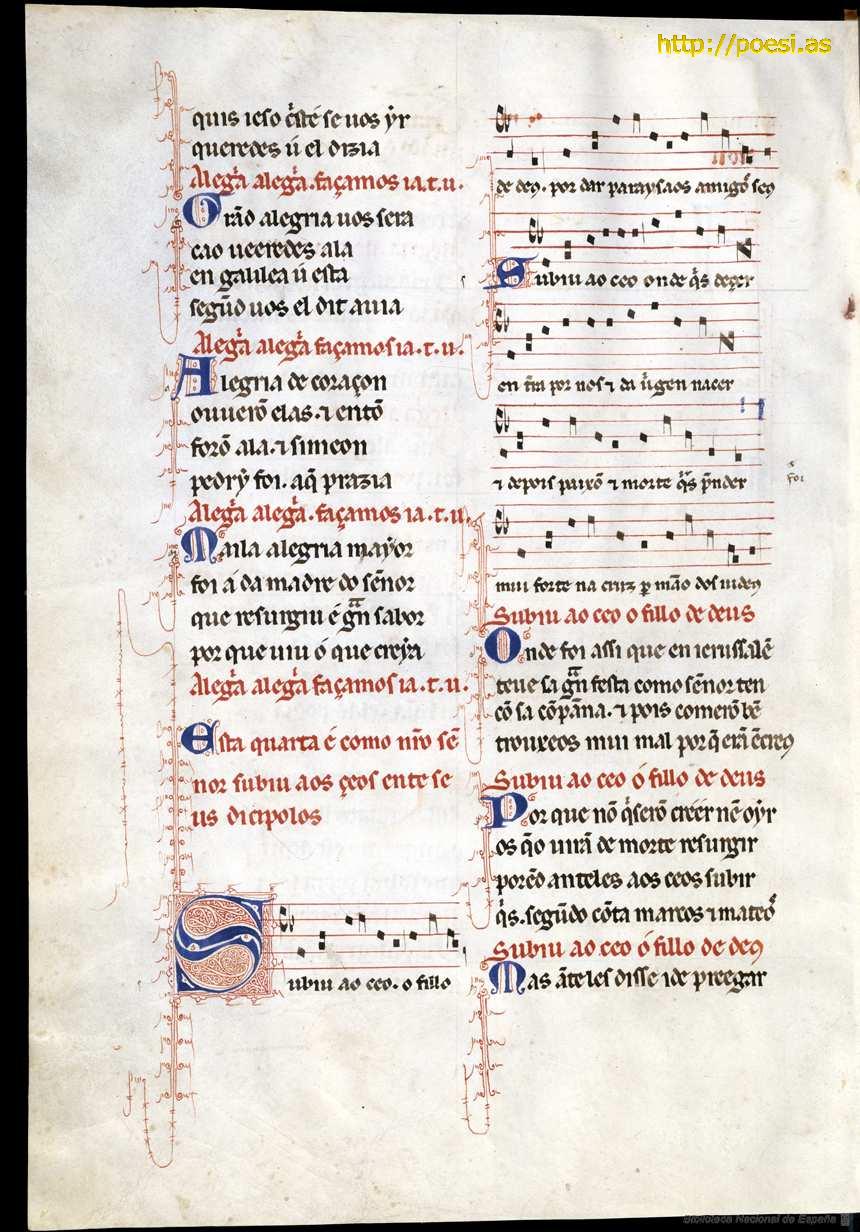 http://poesi.as
quis ieso c̃sté se uos ýr
queredes ú el dizia
Alegr̃a alegr̃a. façamos ia. t. u.
Grãd alegria uos sera
cao ueeredes ala
en galilea ú esta
segũd uos el dit auia
Alegr̃a alegr̃a façamos ia. t. u.
Alegria de coraçon
ouuerõ elas. ⁊ entõ
forõ ala. ⁊ simeon
pedrý foi. aq̃ prazia
Alegr̃a alegr̃a. façamos ia. t. u.
Mailla alegria mayor
foi á da madre do sẽnor
que resurgiu é gr̃n sabor
por que uiu ó que creýa
Alegr̃a alegr̃a façamos ia. t. u.
Esta quarta é como nr̃o sẽ
nor subiu aos çeos ente se
us dicipolos
Subiu ao ceo. o fillo
de deꝯ. por dar parayso aos amigos seꝯ
Subiu ao ceo onde q̃s deçer
en tr̃ra por nos ⁊ da uírgen nacer
⁊ depois paixõ ⁊ morte q̃s p̃nder
foi
mui forte na cruz ꝑ mão dos iudeꝯ
Subiu ao ceo o fillo de deus
Onde foi assi que en ierussalẽ
teue sa gr̃n festa como sẽnor ten
cõ sa cõpãna. ⁊ pois comerõ bẽ
trouxeos mui mal por q̃ erã ẽcreꝯ
Subiu ao ceo ó fillo de deus
Por que nõ q̃serõ creer nẽ oýr
os q̃o uirã de morte resurgir
porẽd anteles aos ceos subir
q̃s. segũdo cõta marcos ⁊ mateꝯ
Subiu ao ceo ó fillo de deꝯ
Mas ãteles disse ide preegar
Biblioteca Nacional de España